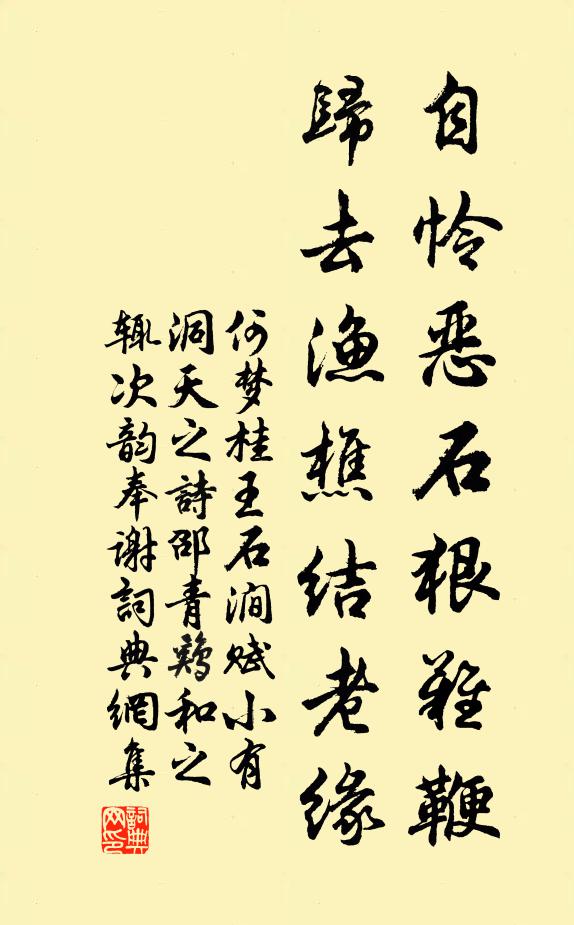 自怜恶石狠难鞭
歸去渔樵结老缘
何梦桂王石涧赋小有
洞天之詩邵青鷄和之
辄次韵奉谢詞典網集
詞典网印